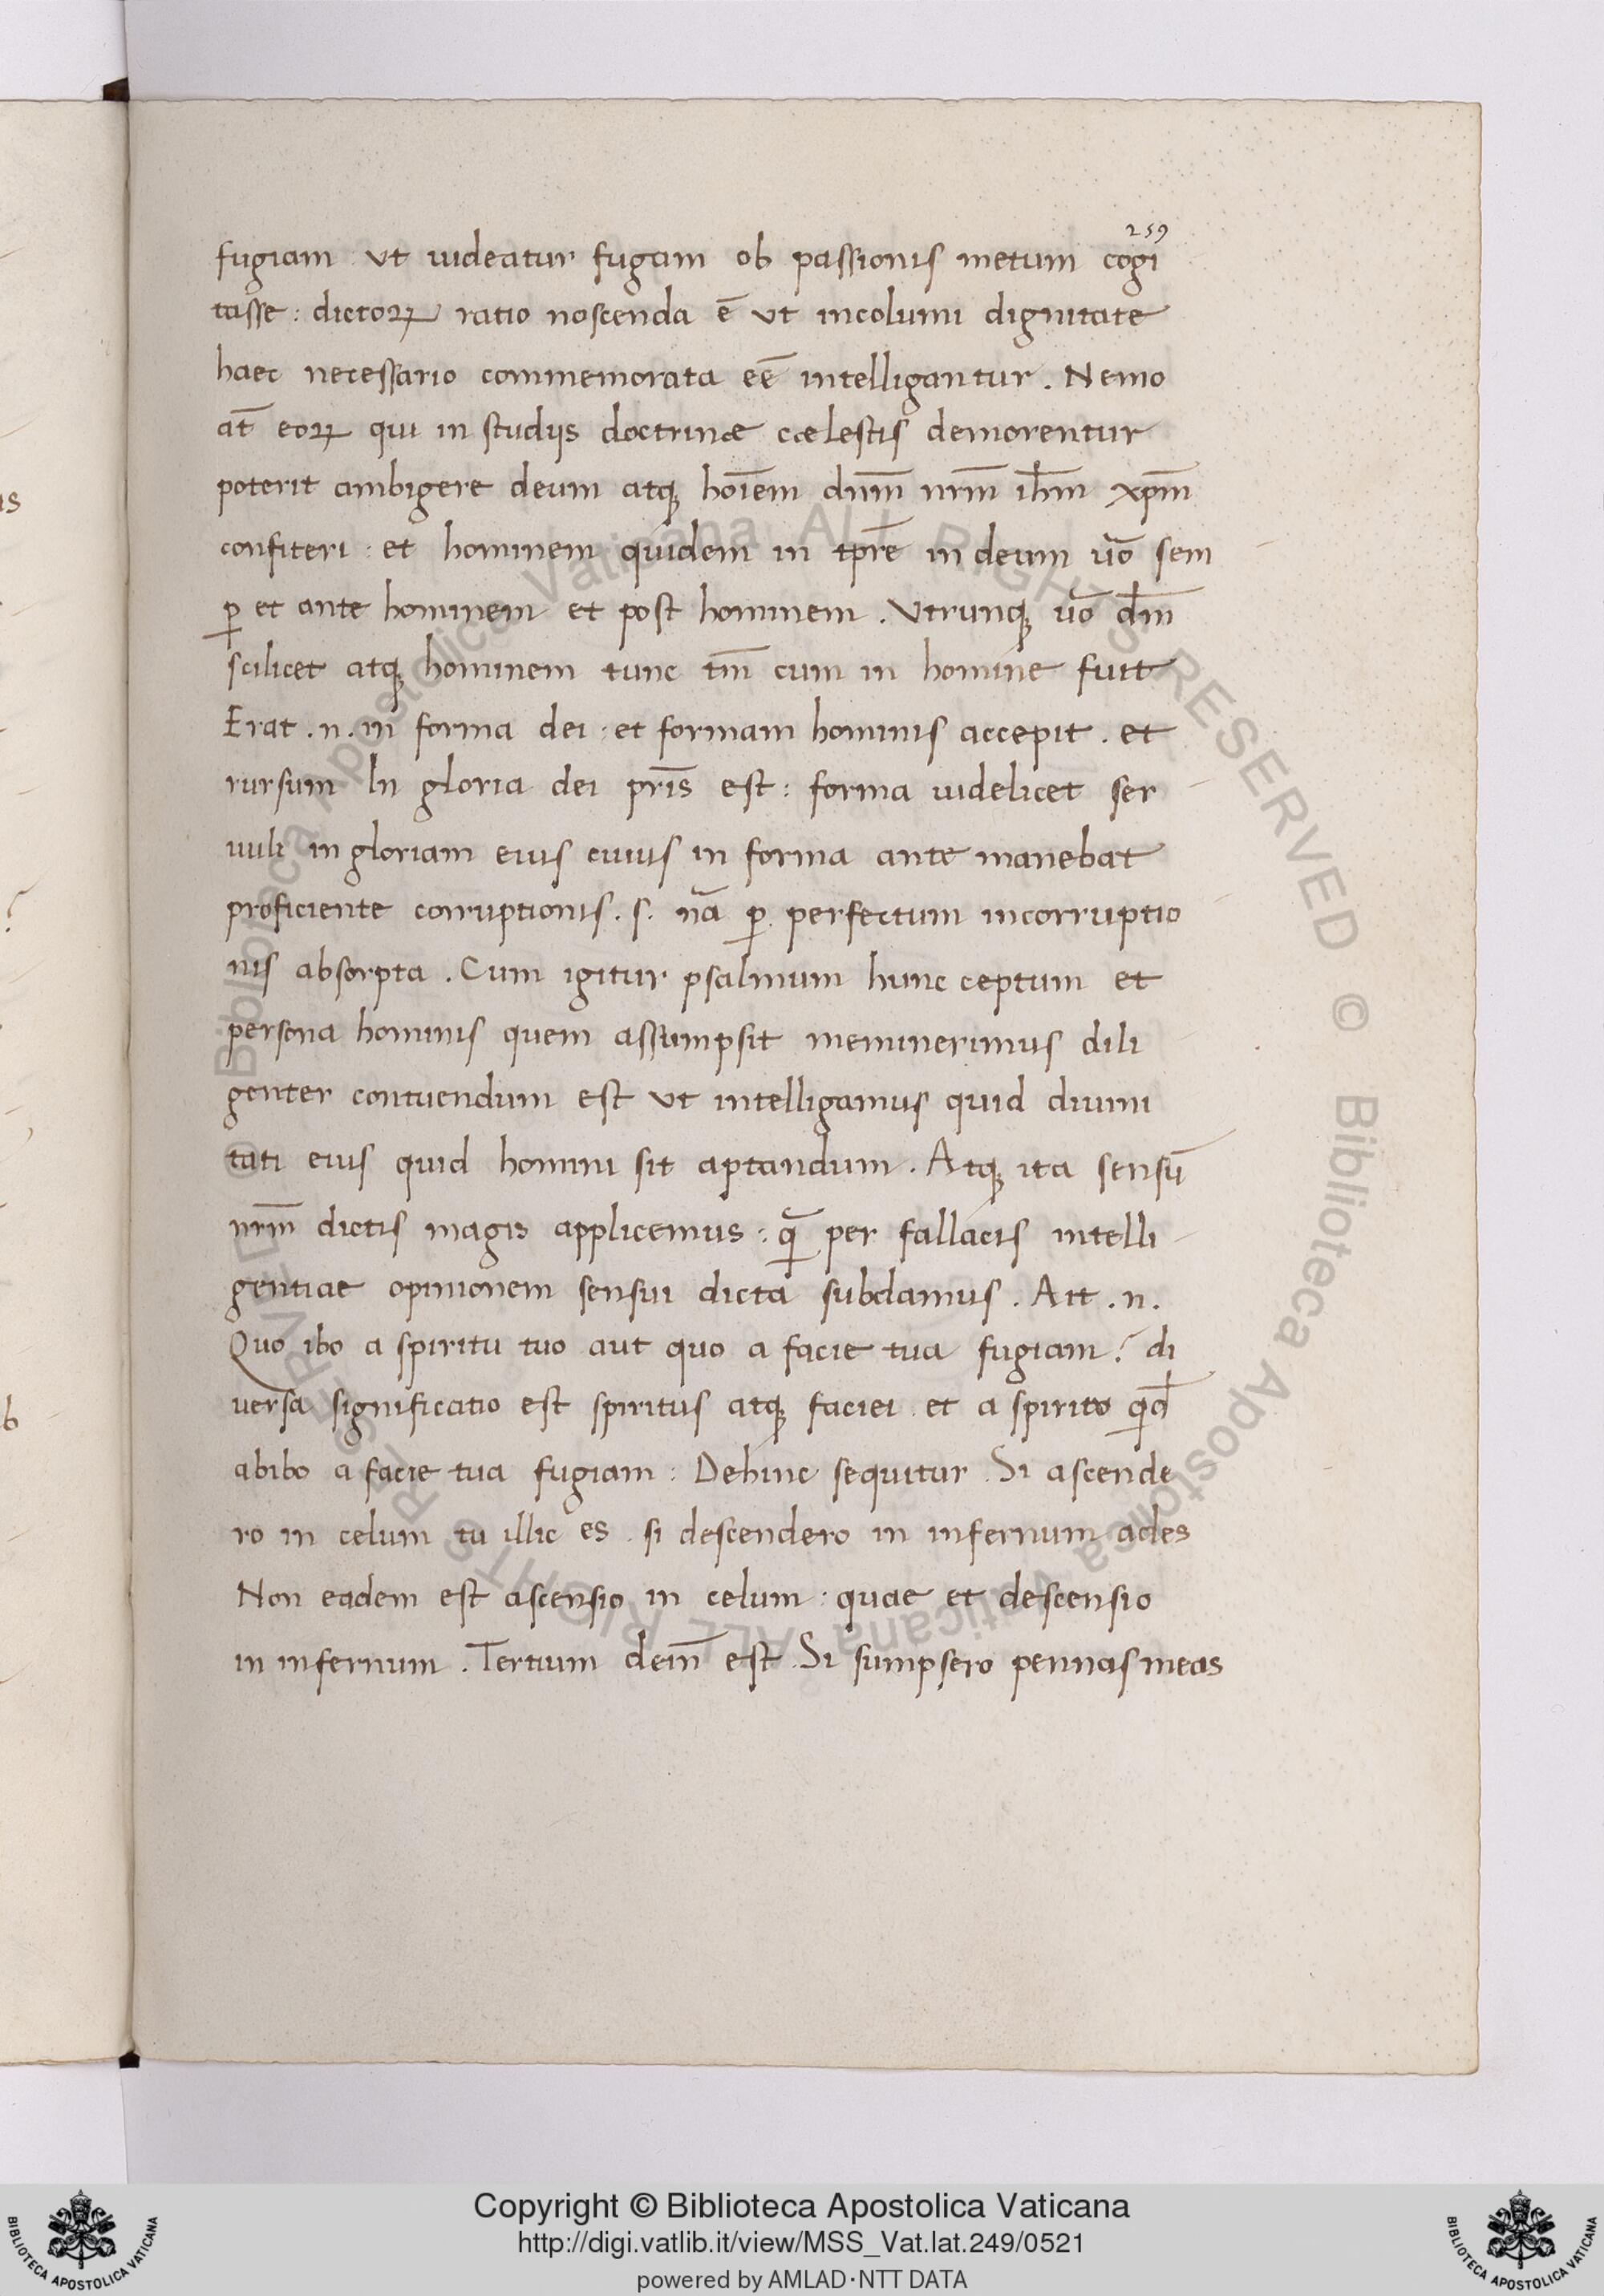 259
fugiam ut uideatur fugam ob passionis metum cogi
tasse : dictoꝝ ratio noscenda ē ut incolumi dignitate
haec necessario commemorata eē intelligantur . Nemo
at̄ eoꝝ qui in studijs doctrinæ cælestis demorentur
poterit ambigere deum atqꝫ hoīem dn̄m nr̄m ih̄m xp̄m
confiteri : et hominem quidem in tp̄re in deum uo̅ sem
ꝑ et ante hominem et post hominem . Vtrunqꝫ uo̅ dm̄
scilicet atqꝫ hominem tunc tm̄ cum in homine fuit
Erat . n . in forma dei : et formam hominis accepit . et
rursum In gloria dei pr̄is est : forma uidelicet ser
uuli in gloriam eius cuius in forma ante manebat
proficiente corruptionis . s . na̅ ꝑ perfectum incorruptio
nis absorpta . Cum igitur psalmum hunc ceptum et
persona hominis quem assumpsit meminerimus dili
genter contuendum est ut intelligamus quid diuini
tati eius quid homini sit aptandum . Atqꝫ ita sensū
nr̄m dictis magis applicemus : qa̅ per fallacis intelli
gentiae opinionem sensui dicta subdamus . Ait . n .
Quo ibo a spiritu tuo aut quo a facie tua fugiam ? di
uersa significatio est spiritus atqꝫ faciei et a spirito
abibo a facie tua fugiam : Dehinc sequitur . Si ascende
ro in celum tu illic es . si descendero in infernum ades
Non eadem est ascensio in celum : quae et descensio
in infernum . Tertium dein̄ est . Si sumpsero pennas meas
Copyright © Biblioteca Apostolica Vaticana
http://digi.vatlib.it/view/MSS_Vat.lat.249/0521
powered by AMLAD·NTT DATA
BIBLIOTECA APOSTOLICA VATICANA
BIBLIOTECA APOSTOLICA VATICANA
© Biblioteca Apostolica Vaticana ALL RIGHTS RESERVED © Biblioteca Apostolica Vaticana ALL RIGHTS RESERVED